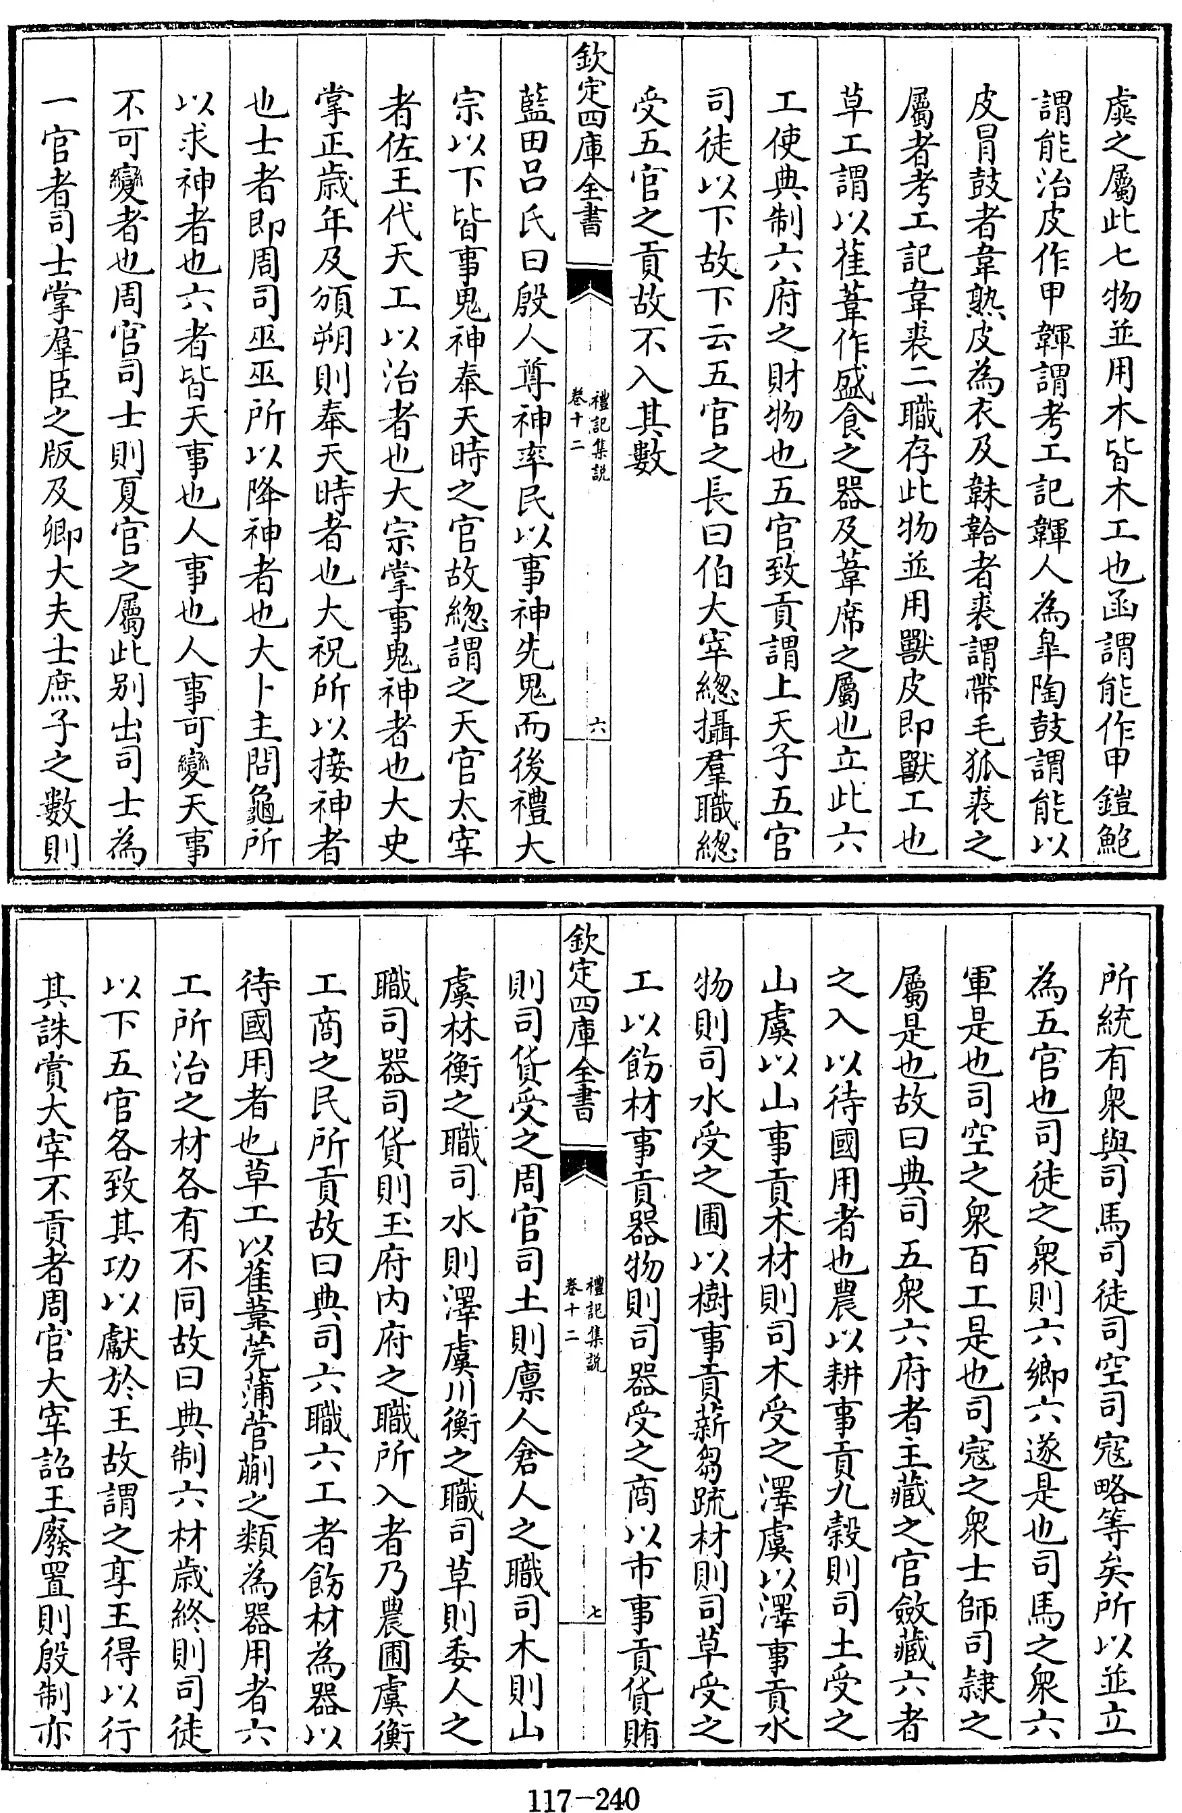 虡之屬此七物並用木皆木工也函謂能作甲鎧鮑
謂能治皮作甲韗謂考工記韗人為臯陶鼓謂能以
皮冒鼓者韋熟皮為衣及韎韐者裘謂帶毛狐裘之
屬者考工記韋裘二職存此物並用獸皮即獸工也
草工謂以萑葦作盛食之器及葦席之屬也立此六
工使典制六府之財物也五官致貢謂上天子五官
司徒以下故下云五官之長曰伯大宰總攝羣職總
受五官之貢故不入其數
欽定四庫全書
禮記集說
卷十二
六
藍田呂氏曰殷人尊神率民以事神先鬼而後禮大
宗以下皆事鬼神奉天時之官故總謂之天官太宰
者佐王代天工以治者也大宗掌事鬼神者也大史
掌正歲年及頒朔則奉天時者也大祝所以接神者
也士者即周司巫巫所以降神者也大卜主問龜所
以求神者也六者皆天事也人事也人事可變天事
不可變者也周官司士則夏官之屬此别出司士為
一官者司士掌羣臣之版及卿大夫士庶子之數則
所統有衆與司馬司徒司空司寇略等矣所以並立
為五官也司徒之衆則六鄉六遂是也司馬之衆六
軍是也司空之衆百工是也司寇之衆士師司隷之
屬是也故曰典司五衆六府者主藏之官斂藏六者
之入以待國用者也農以耕事貢九穀則司土受之
山虞以山事貢木材則司木受之澤虞以澤事貢水
物則司水受之圃以樹事貢薪芻疏材則司草受之
工以飭材事貢器物則司器受之商以市事貢貨賄
欽定四庫全書
禮記集說
卷十二
七
則司貨受之周官司土則廪人倉人之職司木則山
虞林衡之職司水則澤虞川衡之職司草則委人之
職司器司貨則玉府内府之職所入者乃農圃虞衡
工商之民所貢故曰典司六職六工者飭材為器以
待國用者也草工以萑葦莞蒲菅蒯之類為器用者六
工所治之材各有不同故曰典制六材歲終則司徒
以下五官各致其功以獻於王故謂之享王得以行
其誅賞大宰不貢者周官大宰詔王廢置則殷制亦
117-240